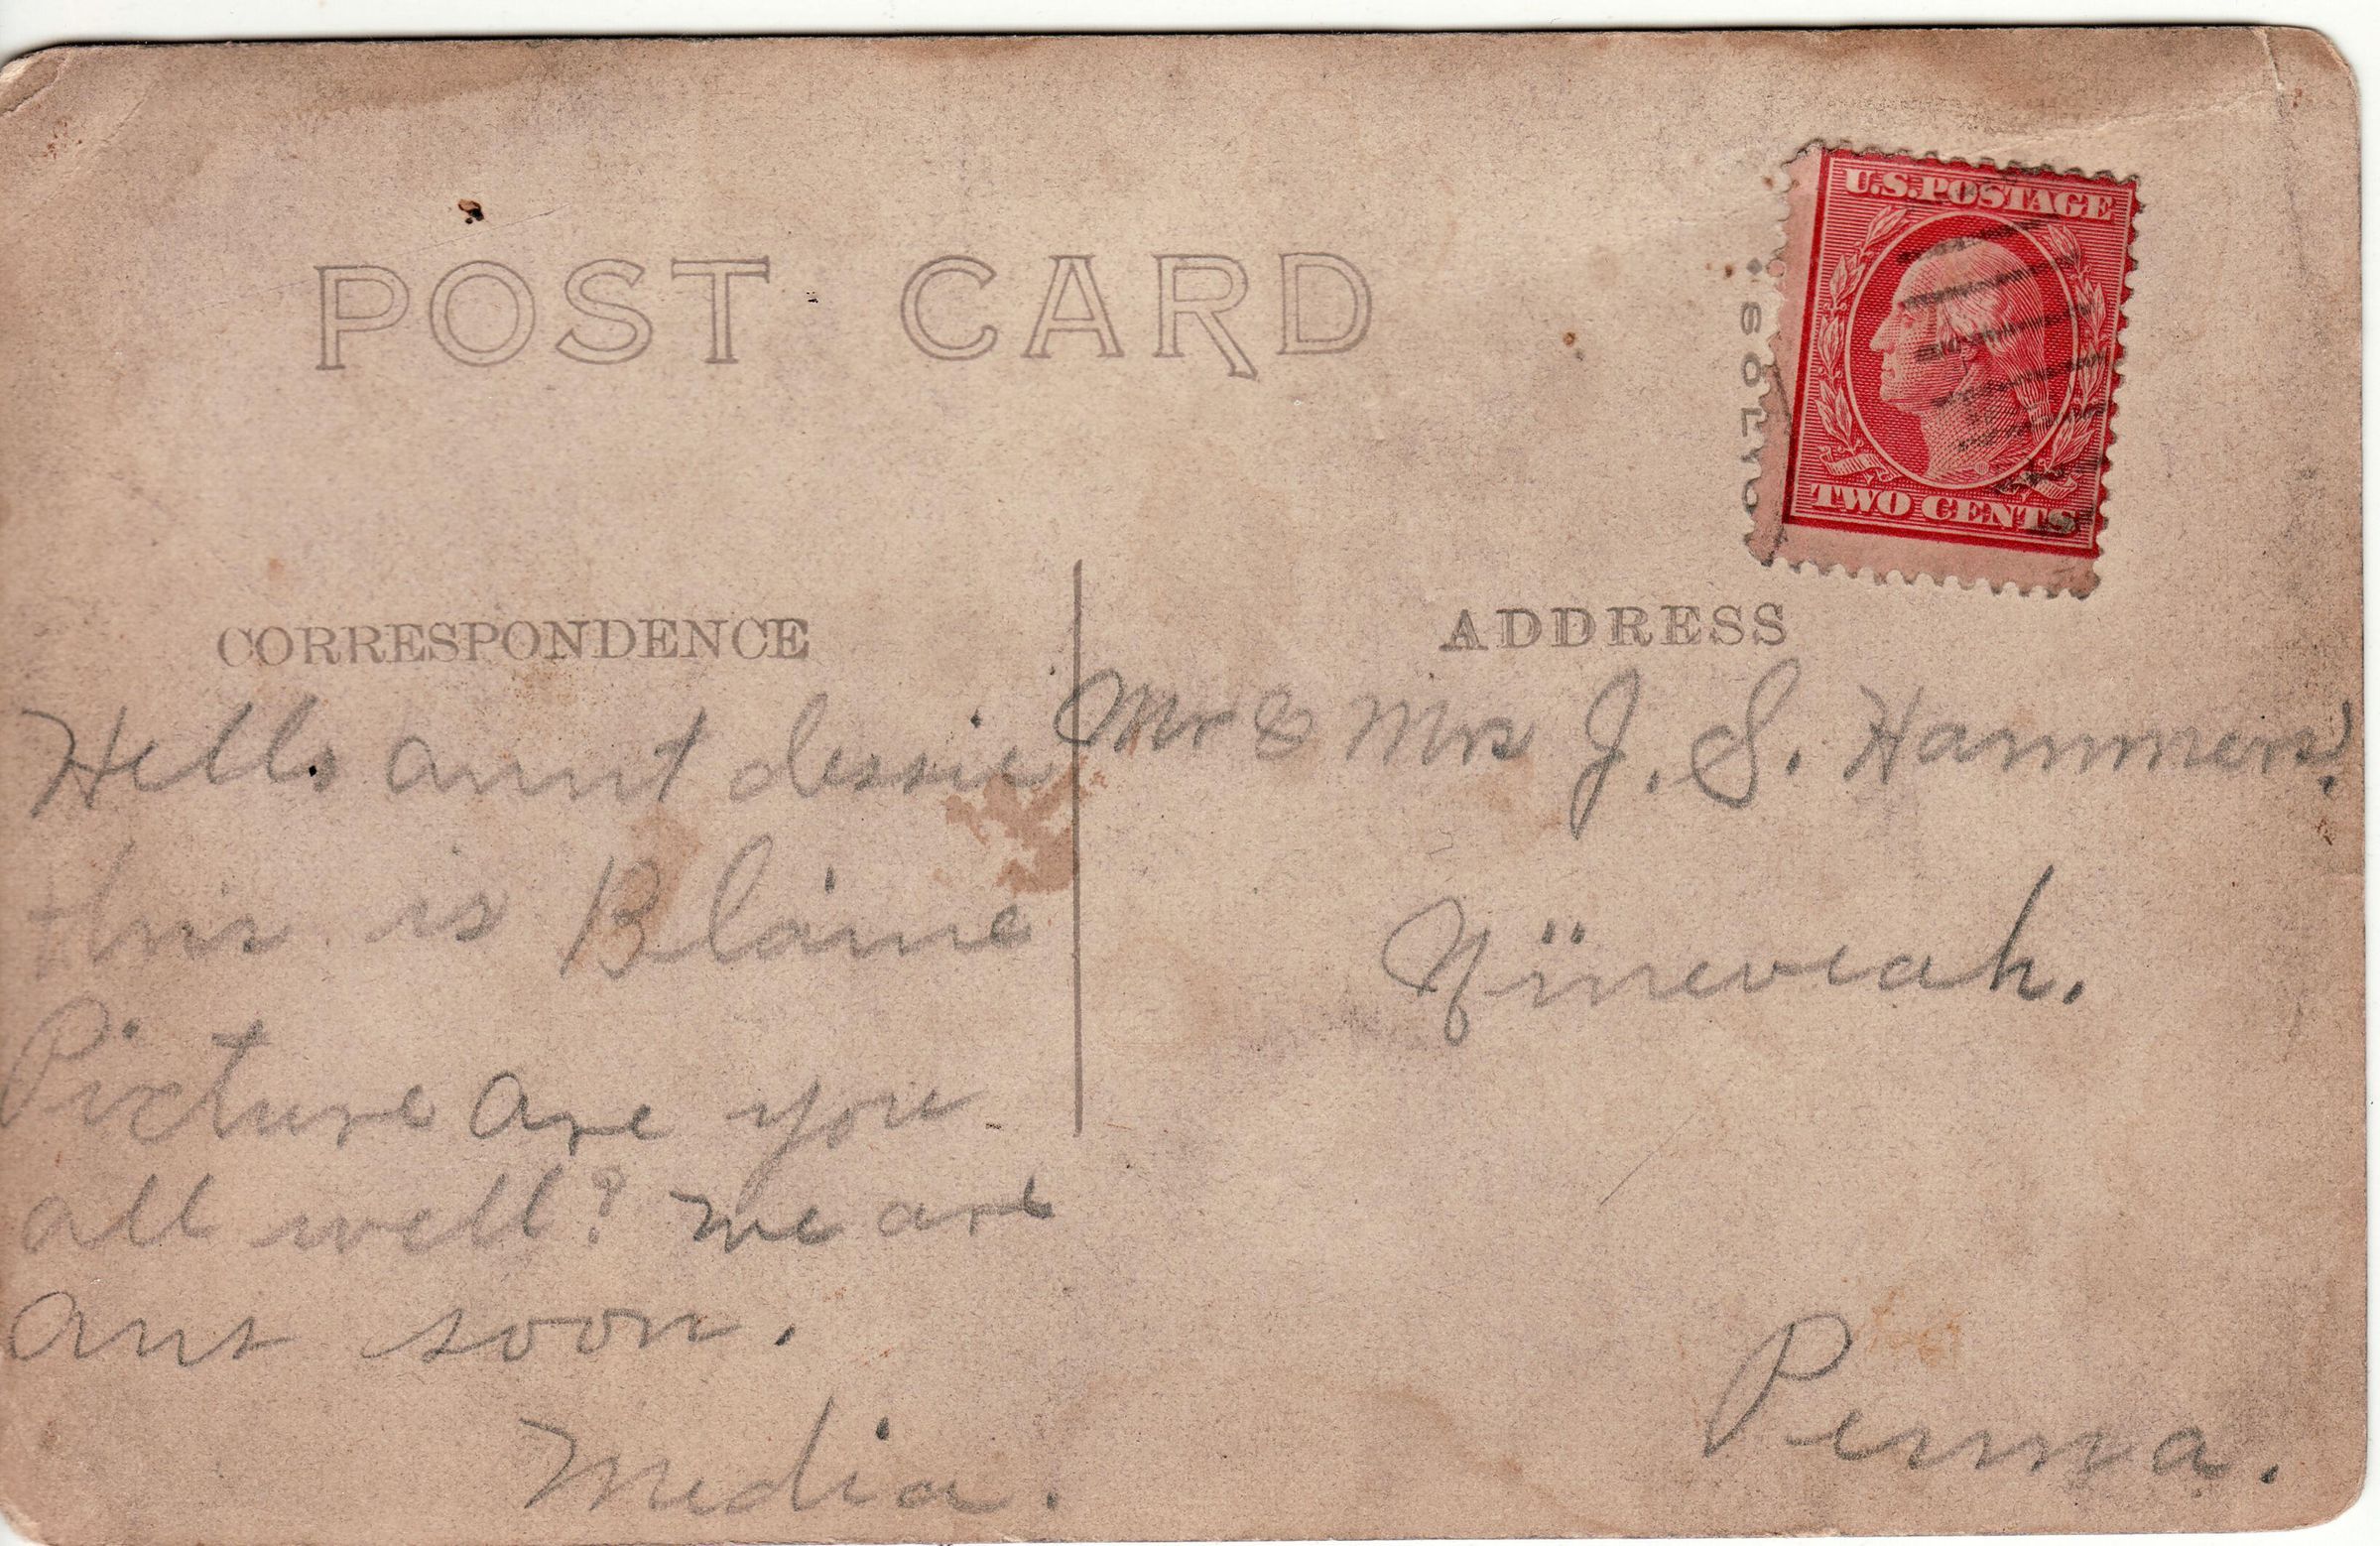 POST CARD
U.S. POSTAGE
TWO CENTS
CYKO
CORRESPONDENCE
ADDRESS
Hello aunt dessie
this is Blaine
Picture are you
all well? we are
Ans soon.
Media.
Mr & Mrs J. S. Hammers.
Nineveah.
Penna.